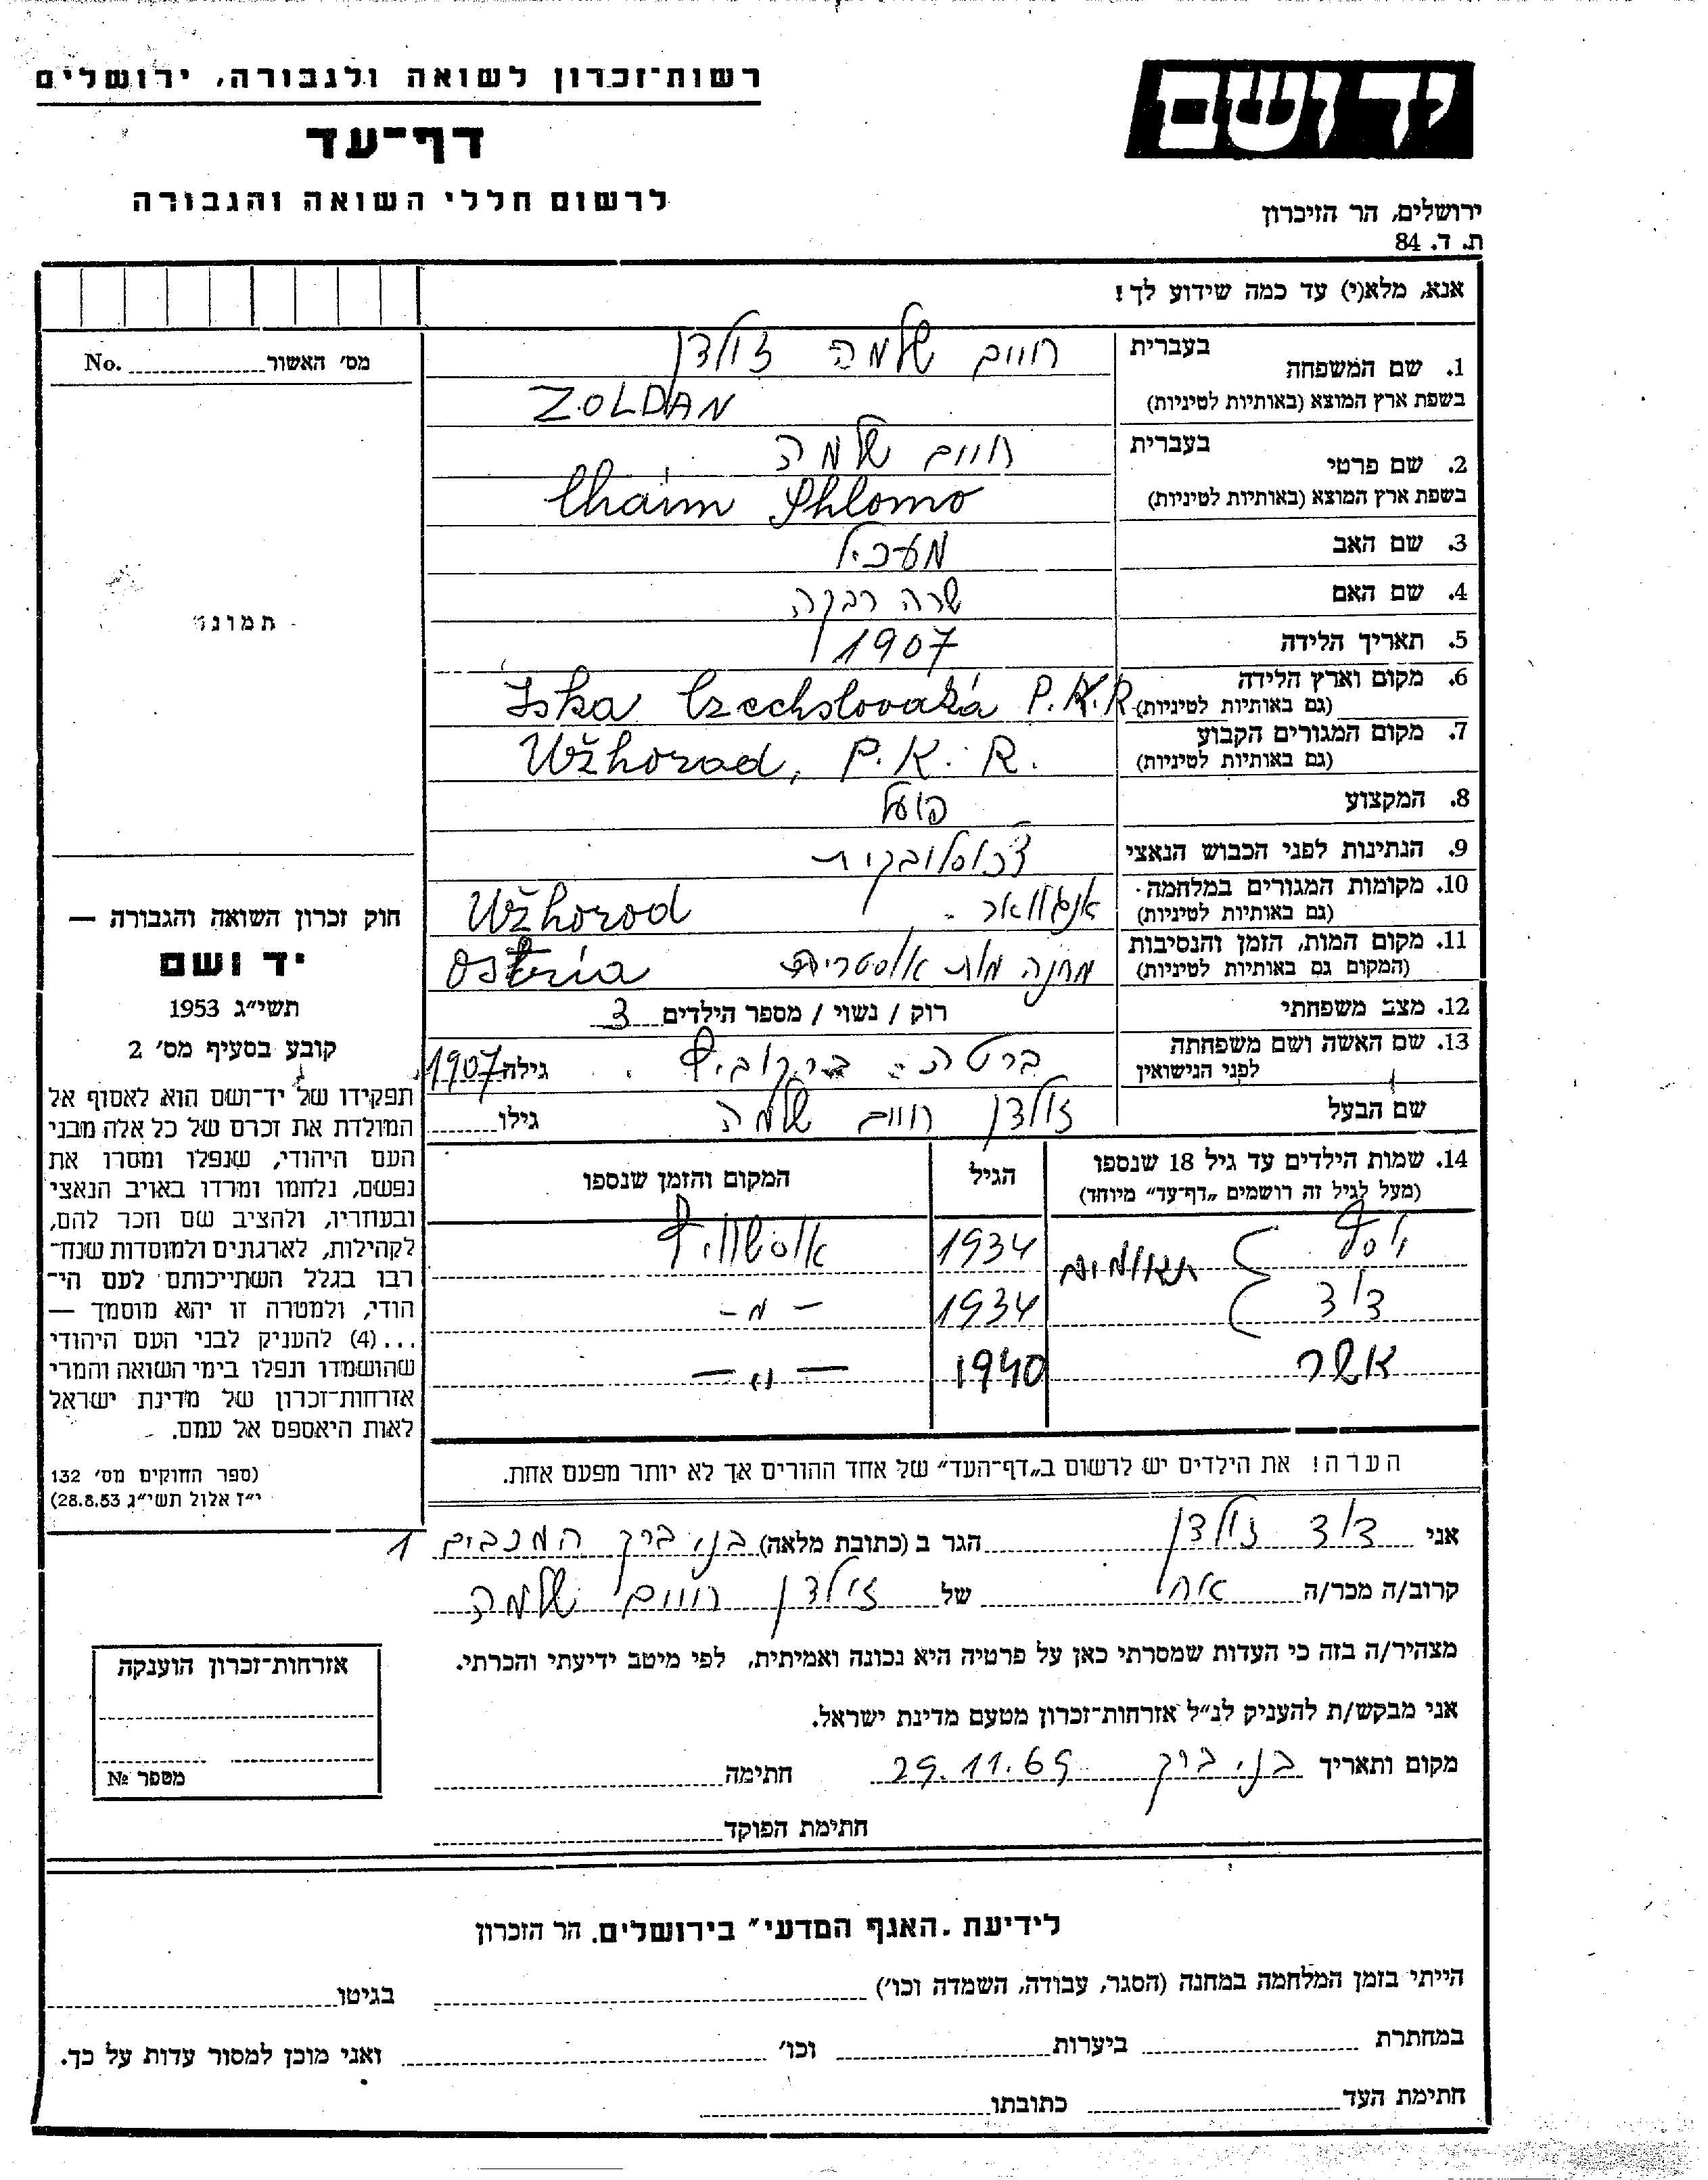 רשות־זכרון לשואה ולגבורה, ירושלים
דף־עד
לרשום חללי השואה והגבורה
יד ושם
ירושלים, הר הזיכרון
ת. ד. 84
אנא, מלא(י) עד כמה שידוע לך!
1. שם המשפחה בעברית חיים שלמה זולדן
בשפת ארץ המוצא (באותיות לטיניות) ZOLDAN
2. שם פרטי בעברית חיים שלמה
בשפת ארץ המוצא (באותיות לטיניות) Chaim Shlomo
3. שם האב
4. שם האם שרה רבקה
5. תאריך הלידה 1907
6. מקום וארץ הלידה
(גם באותיות לטיניות) Iska Czechslovaká P.K.R
7. מקום המגורים הקבוע
(גם באותיות לטיניות) Užhorod, P.K.R.
8. המקצוע פועל
9. הנתינות לפני הכבוש הנאצי
10. מקומות המגורים במלחמה
(גם באותיות לטיניות) אונגוואר Užhorod
11. מקום המות, הזמן והנסיבות
(המקום גם באותיות לטיניות) מחנה מות Ostria
12. מצב משפחתי רוק / נשוי / מספר הילדים 3
13. שם האשה ושם משפחתה
לפני הנישואין ברטה ברקוביץ גילה 1907
שם הבעל זולדן חיים שלמה גילו
14. שמות הילדים עד גיל 18 שנספו הגיל המקום והזמן שנספו
(מעל לגיל זה רושמים „דף־עד” מיוחד)
יוסף תאומים 1934 אושוויץ
דוד 1934 - " -
אשר 1940 - " -
הערה! את הילדים יש לרשום ב„דף־העד” של אחד ההורים אך לא יותר מפעם אחת.
מס׳ האשור No.
תמונה
חוק זכרון השואה והגבורה —
יד ושם
תשי״ג 1953
קובע בסעיף מס׳ 2
תפקידו של יד־ושם הוא לאסוף אל
המולדת את זכרם של כל אלה מבני
העם היהודי, שנפלו ומסרו את
נפשם, נלחמו ומרדו באויב הנאצי
ובעוזריו, ולהציב שם וזכר להם,
לקהילות, לארגונים ולמוסדות שנח־
רבו בגלל השתייכותם לעם הי־
הודי, ולמטרה זו יהא מוסמך —
...(4) להעניק לבני העם היהודי
שהושמדו ונפלו בימי השואה והמרי
אזרחות־זכרון של מדינת ישראל
לאות היאספם אל עמם.
(ספר החוקים מס׳ 132
י״ז אלול תשי״ג 28.8.53)
אני דוד זולדן הגר ב (כתובת מלאה) בני ברק המכבים 1
קרוב/ה מכר/ה אח של זולדן חיים שלמה
מצהיר/ה בזה כי העדות שמסרתי כאן על פרטיה היא נכונה ואמיתית, לפי מיטב ידיעתי והכרתי.
אני מבקש/ת להעניק לנ״ל אזרחות־זכרון מטעם מדינת ישראל.
מקום ותאריך בני ברק 29.11.69 חתימה
חתימת הפוקד
אזרחות־זכרון הוענקה
מספר №
לידיעת „האגף המדעי” בירושלים. הר הזכרון
הייתי בזמן המלחמה במחנה (הסגר, עבודה, השמדה וכו׳) בגיטו
במחתרת ביערות וכו׳ ואני מוכן למסור עדות על כך.
חתימת העד כתובתו